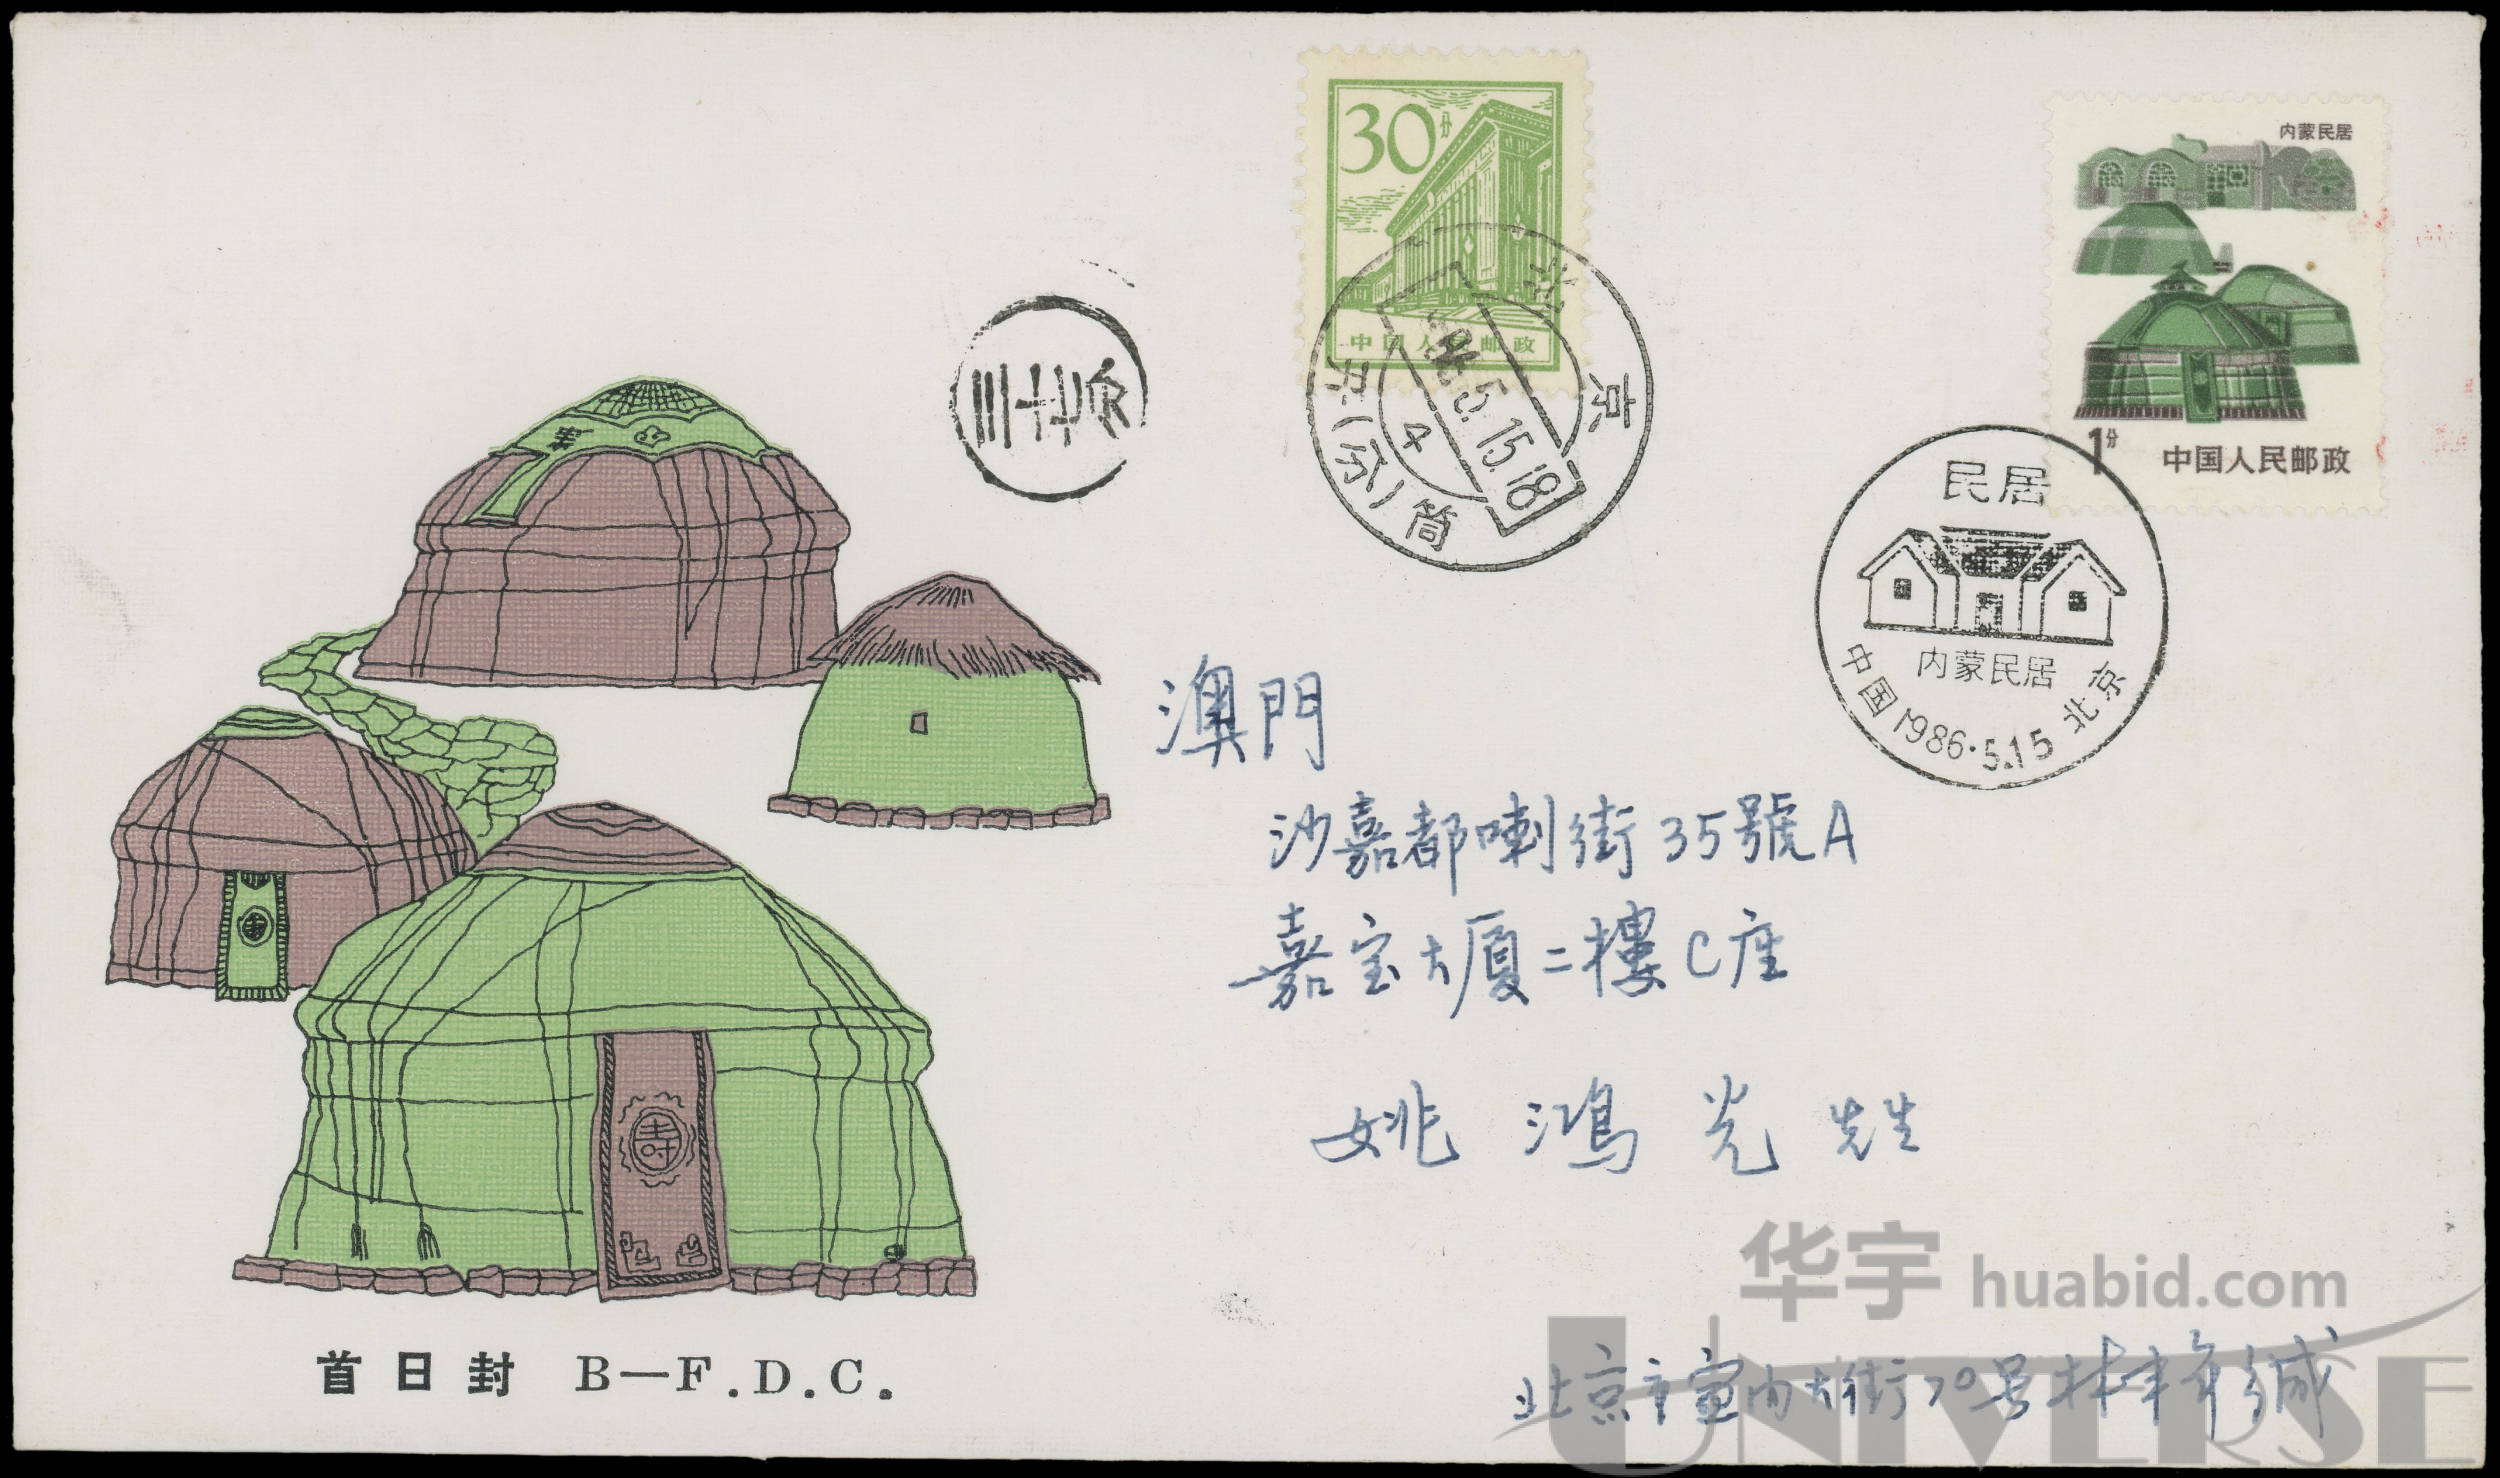 30分
中国人民邮政
内蒙民居
1分
中国人民邮政
三十七仓
北京
86.5.15.18
4
(分)筒
民居
内蒙民居
中国 1986.5.15 北京
澳門
沙嘉都喇街35號A
嘉宝大厦二樓C座
姚鴻光先生
寿
首日封 B—F.D.C.
华宇 huabid.com
北京市宣内大街70号林
UNIVERSE